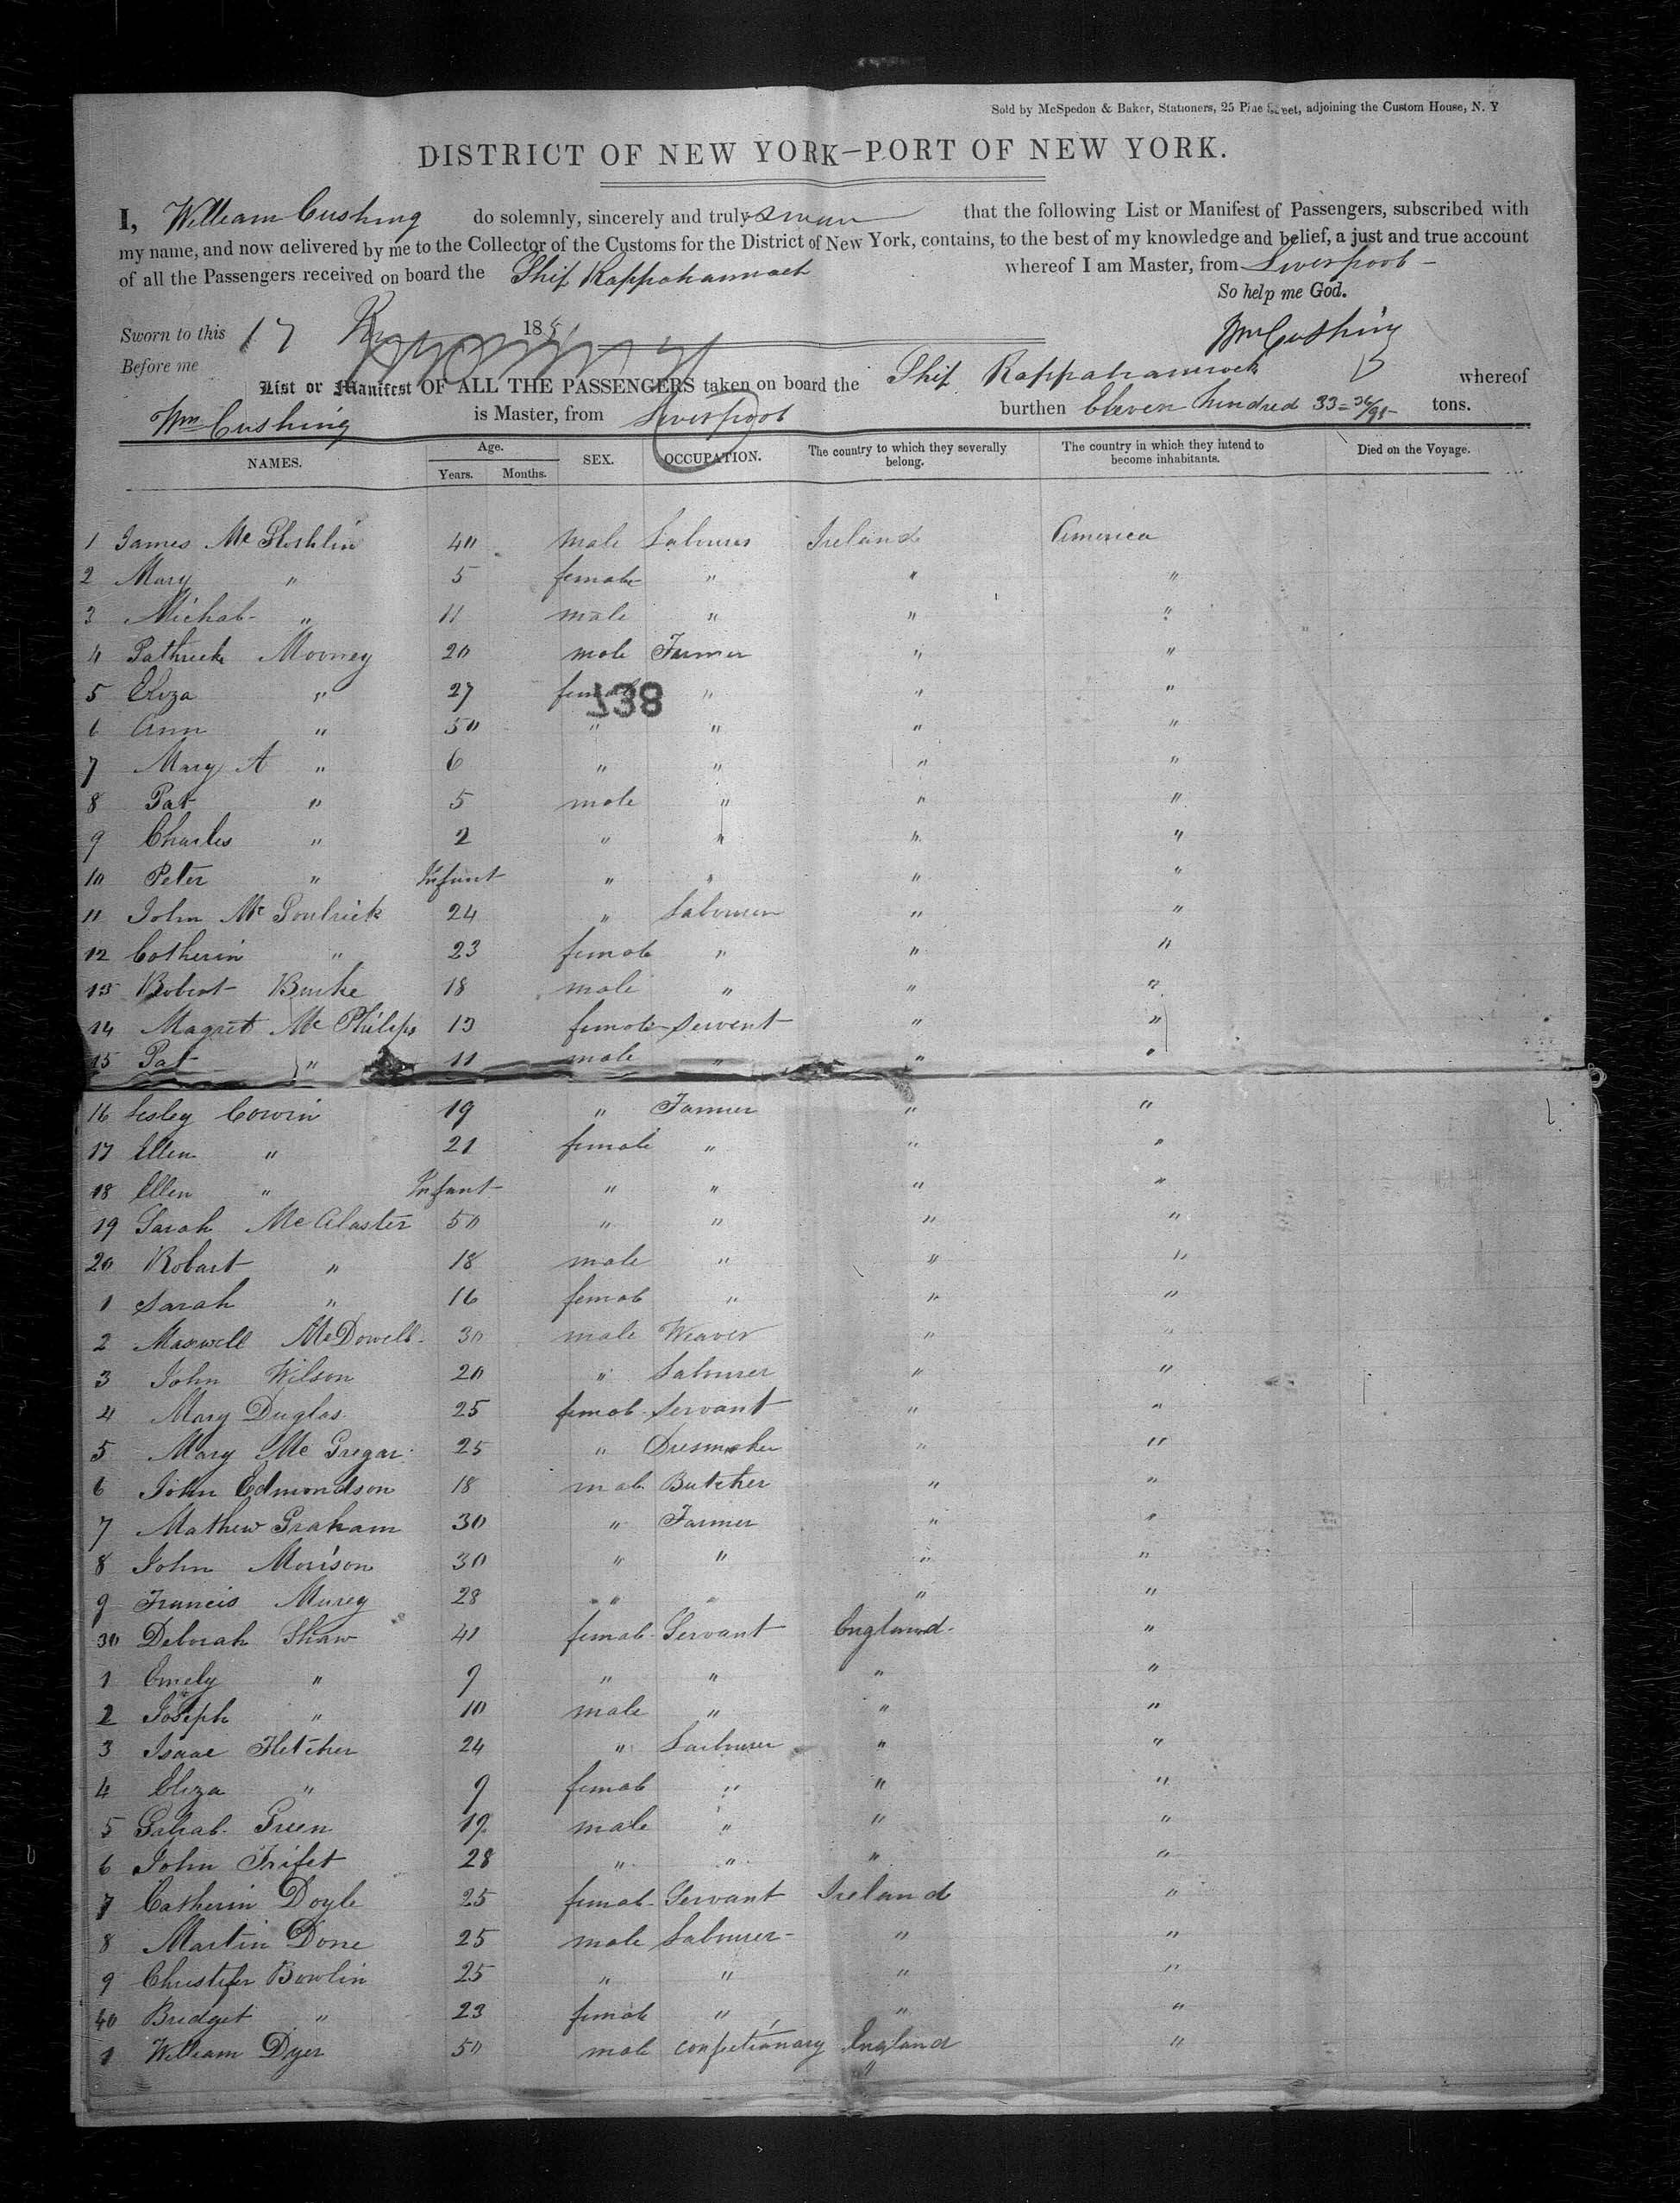 Sold by McSpedon & Baker, Stationers, 25 Pine Street, adjoining the Custom House, N. Y
DISTRICT OF NEW YORK—PORT OF NEW YORK.
I, William Cushing do solemnly, sincerely and truly swear that the following List or Manifest of Passengers, subscribed with
my name, and now delivered by me to the Collector of the Customs for the District of New York, contains, to the best of my knowledge and belief, a just and true account
of all the Passengers received on board the Ship Rappahannock whereof I am Master, from Liverpool
So help me God.
Sworn to this 17 185 Wm Cushing
Before me
List or Manifest OF ALL THE PASSENGERS taken on board the Ship Rappahannock whereof
Wm Cushing is Master, from Liverpool burthen Eleven hundred 33 tons.
NAMES. Age. Years. Months. SEX. OCCUPATION. The country to which they severally belong. The country in which they intend to become inhabitants. Died on the Voyage.
1 James Mc 40 male Labourer Ireland America
2 Mary " 5 female " " "
3 Michal " 11 male " " "
4 Pathrick Mooney 20 male Farmer " "
5 Eliza " 27 female " " "
738
6 Ann " 50 " " " "
7 Mary A " 6 " " " "
8 Pat " 5 male " " "
9 Charles " 2 " " " "
10 Peter " Infant " " " "
11 John Mc 24 " Labourer " "
12 Catherin " 23 female " " "
13 Robert Burke 18 male " " "
14 Magret Mc Philips 13 female servent " "
15 Pat " 11 male " " "
16 Lesley Cowin 19 " Farmer " "
17 Ellen " 21 female " " "
18 Ellen " Infant " " " "
19 Sarah McAlaster 50 " " " "
20 Robart " 18 male " " "
1 Sarah " 16 femal " " "
2 Maxwell McDowell 30 male Weaver " "
3 John Wilson 20 " Labourer " "
4 Mary Duglas 25 femal Servant " "
5 Mary Mc Gregar 25 " Dresmaker " "
6 John Edmondson 18 mal Butcher " "
7 Mathew Graham 30 " Farmer " "
8 John Morison 30 " " " "
9 Francis Murey 28 " " " "
30 Deborah Shaw 41 femal Servant England "
1 Emely " 9 " " " "
2 Joseph " 10 male " " "
3 Isaac Fletcher 24 " Laibourer " "
4 Eliza " 9 femal " " "
5 Green 19 male " " "
6 John Trifet 28 " " " "
7 Catherin Doyle 25 femal Servant Ireland "
8 Martin Done 25 male Labourer " "
9 Christifer Bowlin 25 " " " "
40 Bridget " 23 female " " "
1 William Dyer 50 male confectionary England "
"